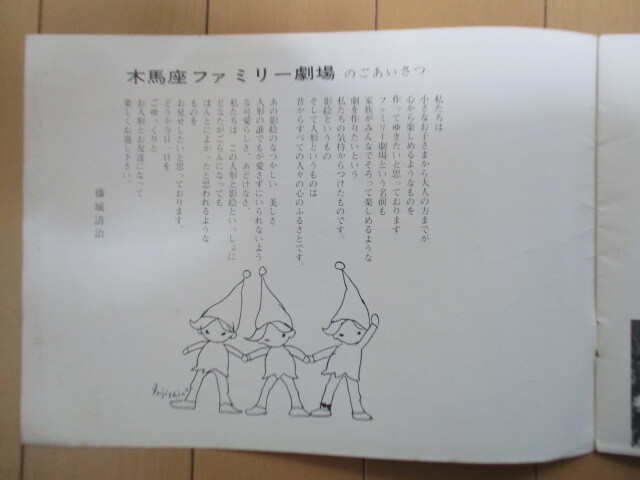 木馬座ファミリー劇場 のごあいさつ
私たちは
小さなお子さまから大人の方までが
心から楽しめるようなものを
作ってゆきたいと思っております
ファミリー劇場という名前も
家族がみんなでそろって楽しめるような
劇を作りたいという
私たちの気持からつけたものです。
影絵というもの
そして人形というものは
昔からすべての人々の心のふるさとです。
あの影絵のなつかしい 美しさ
人形の誰でもが愛さずにいられないよう
な可愛らしさ、あどけなさ、
私たちは この人形と影絵といっしょに
どなたがごらんになっても
ほんとによかったと思われるような
ものを
お見せしたいと思っております。
どうか今日一日を
ごゆっくりと
お人形とお友達になって
楽しくお過し下さい。
藤城清治